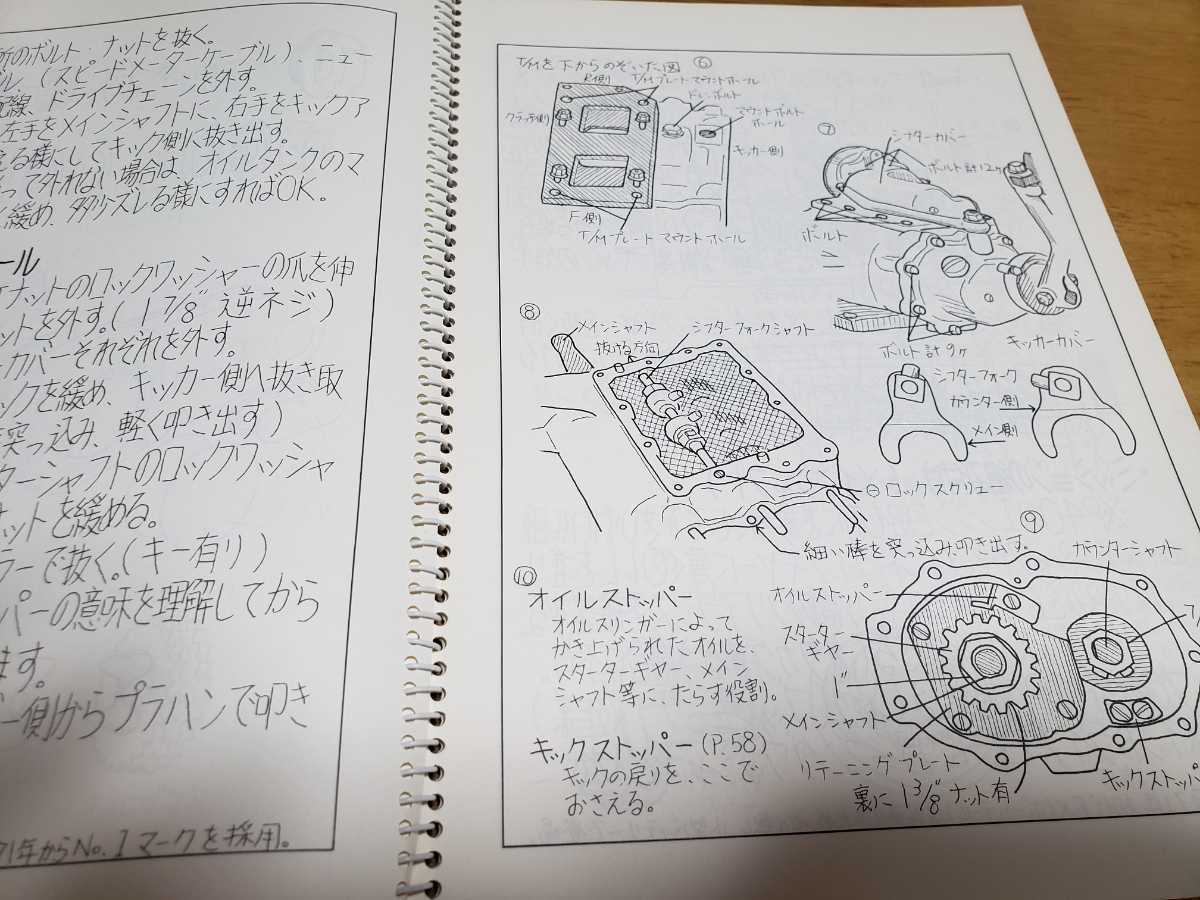 所のボルト・ナットを抜く。
(スピードメーターケーブル)、ニュー
配線、ドライブチェーンを外す。
左手をメインシャフトに、右手をキックア
える様にしてキック側に抜き出す。
って外れない場合は、オイルタンクのマ
緩め、タンクがズレる様にすればOK。
ール
ナットのロックワッシャーの爪を伸
ットを外す。(1 7/8" 逆ネジ)
カバーそれぞれを外す。
ックを緩め、キッカー側へ抜き取
突っ込み、軽く叩き出す)
ターシャフトのロックワッシャ
ナットを緩める。
ラーで抜く。(キー有り)
パーの意味を理解してから
ます。
ー側からプラハンで叩き
71年からNo.1マークを採用。
T/Mを下からのぞいた図 ⑥
R側
T/Mプレートマウントホール
ドレンボルト
マウントボルト
ホール
クラッチ側
キッカー側
F側
T/Mプレートマウントホール
⑦
シフターカバー
ボルト計12ヶ
ボルト
ボルト計9ヶ
キッカーカバー
⑧
メインシャフト
抜ける方向
シフターフォークシャフト
シフターフォーク
カウンター側
メイン側
⊖ロックスクリュー
細い棒を突っ込み叩き出す。
⑨
カウンターシャフト
オイルストッパー
スターター
ギヤー
メインシャフト
リテーニングプレート
裏に 1 3/8" ナット有
キックストッパ
⑩
オイルストッパー
オイルスリンガーによって
かき上げられたオイルを、
スターターギヤー、メイン
シャフト等に、たらす役割。
キックストッパー(P.58)
キックの戻りを、ここで
おさえる。